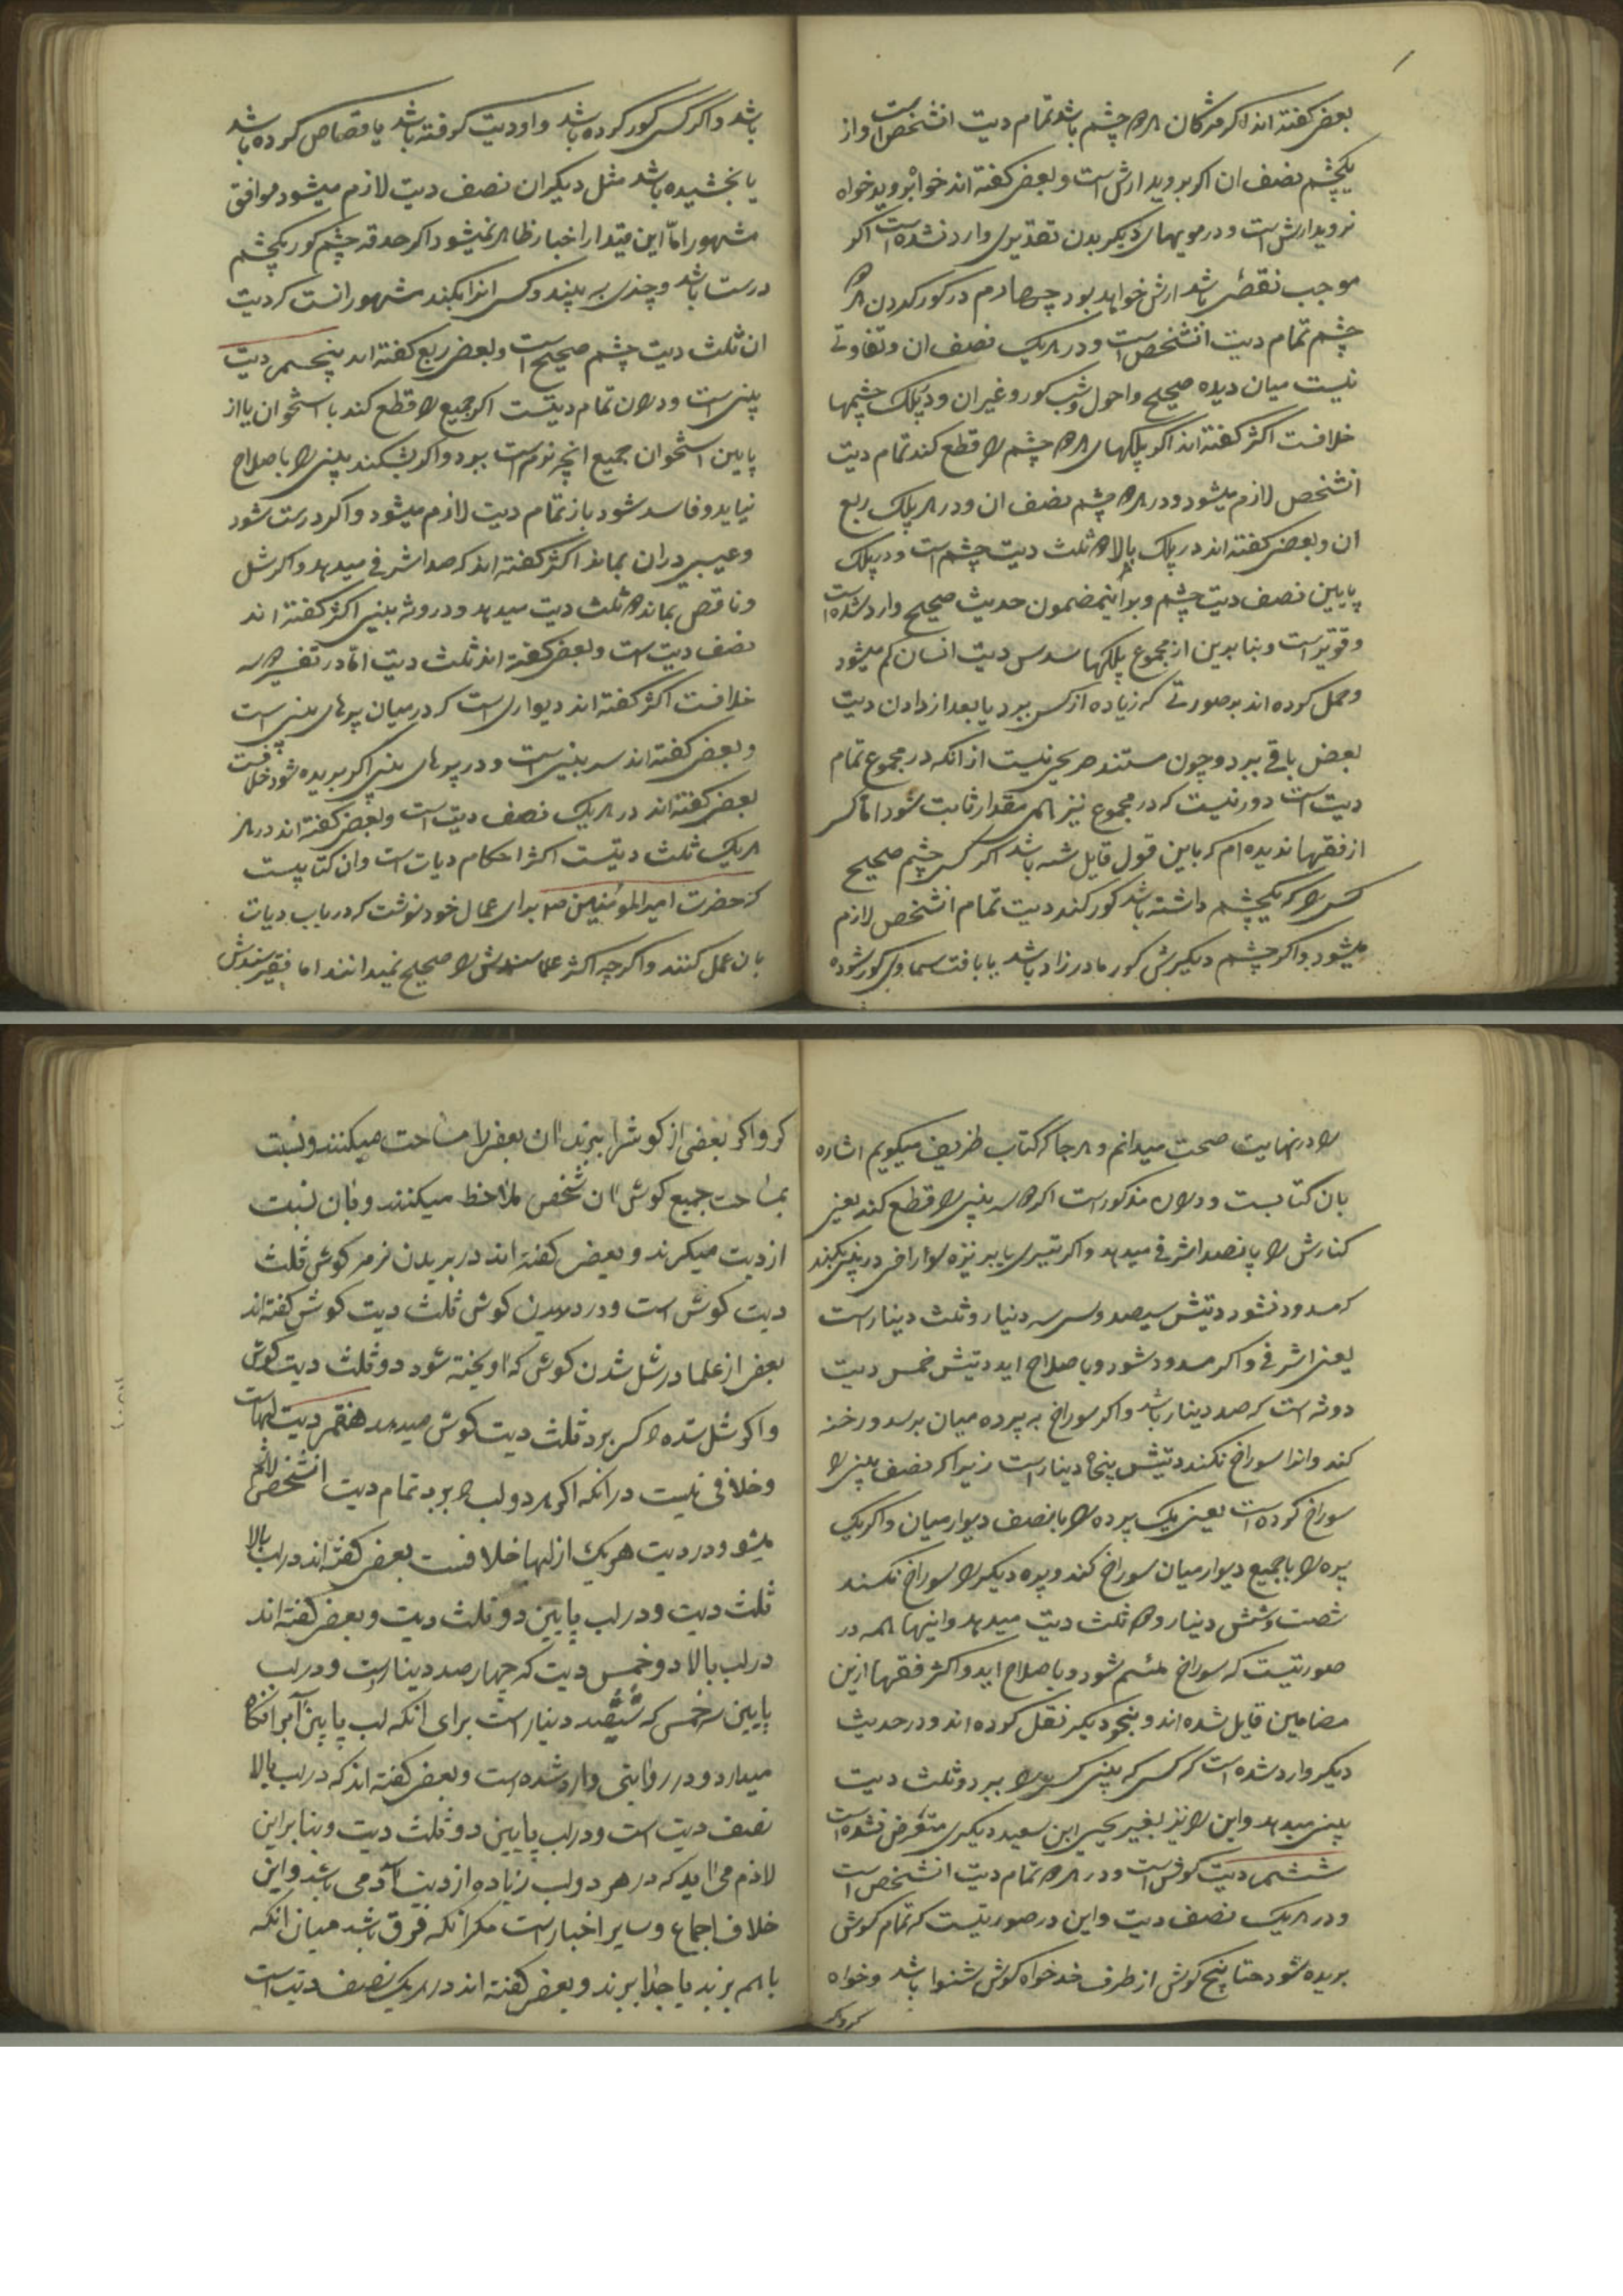 بعضی گفته اند اکر مژکان هر دو چشم باشد تمام دیت انشخص است واز
یکچشم نصف ان اکر بروید ارش است و بعضی گفته اند خواه بروید خواه
نروید ارش است و در مویهای دیکر بدن تقدیری وارد نشده است اکر
موجب نقصی باشد ارش خواهد بود چهارم در کور کردن هر دو
چشم تمام دیت انشخص است و در هر یک نصف ان و تفاوتی
نیست میان دیده صحیح و احول و شب کور و غیر ان و در پلک چشمها
خلافست اکثر گفته اند اکر پلکهای هر دو چشم را قطع کند تمام دیت
انشخص لازم میشود و در هر دو چشم نصف ان و در هر پلک ربع
ان و بعضی گفته اند در پلک بالا دو ثلث دیت چشم است و در پلک
پایین نصف دیت چشم و بر اینمضمون حدیث صحیح وارد شده است
و قویتر است و بنا برین از مجموع پلکها سدس دیت انسان کم میشود
و حمل کرده اند بر صورتی که زیاده از کس ببرد یا بعد از دادن دیت
بعض باقی ببرد و چون مستند صریحی نیست از انکه در مجموع تمام
دیت است دور نیست که در مجموع نیز همی مقدار ثابت شود اما کسی
از فقها ندیده ام که باین قول قایل شده باشد اکر کسی چشم صحیح
کسی را که یکچشم داشته باشد کور کند دیت تمام انشخص لازم
میشود و اکر چشم دیکرش کور مادرزاد باشد یا بافت سماوی کور شده
باشد و اکر کسی کور کرده باشد و او دیت کرفته باشد یا قصاص کرده باشد
یا بخشیده باشد مثل دیکران نصف دیت لازم میشود موافق
مشهور اما این مقدار از اخبار ظاهر نمیشود اکر حدقه چشم کور یکچشم
درست باشد و چیزی به بیند و کسی انرا بکند مشهور انست که دیت
ان ثلث دیت چشم صحیح است و بعضی ربع گفته اند پنجم دیت
بینی است و در ان تمام دیتست اکر جمیع را قطع کند با استخوان یا از
پایین استخوان جمیع انچه نرم است ببرد و اکر بشکند بینی را باصلاح
نیاید و فاسد شود باز تمام دیت لازم میشود و اکر درست شود
و عیبی در ان بماند اکثر گفته اند که صد اشرفی میدهد و اکر شل
و ناقص بماند دو ثلث دیت میدهد و در روثه بینی اکثر گفته اند
نصف دیت است و بعضی گفته اند ثلث دیت اما در تفسیر روثه
خلافست اکثر گفته اند دیواری است که در میان پرهای بینی است
و بعضی گفته اند سر بینی است و در پرهای بینی اکر بریده شود خلافست
بعضی گفته اند در هر یک نصف دیت است و بعضی گفته اند در هر
هر یک ثلث دیتست اکثر احکام دیات است وان کتابیست
که حضرت امیرالمؤمنین ص برای عمال خود نوشت که در باب دیات
بان عمل کنند و اکرچه اکثر علما سندش را صحیح نمیدانند اما فقیر سندش
را در نهایت صحت میدانم و هر جا که کتاب ظریف میکویم اشاره
بان کتابست و در ان مذکور است اکر روثه بینی را قطع کند یعنی
کنارش را پانصد اشرفی میدهد و اکر تیری یا نیزه سوراخی در بینی بکند
که مسدود نشود دیتش سیصد و سی سه دینار و ثلث دینار است
یعنی اشرفی و اکر مسدود شود و باصلاح اید دیتش خمس دیت
روثه است که صد دینار باشد و اکر سوراخ به پرده میان برسد و رخنه
کند و انرا سوراخ نکند دیتش پنجاه دینار است زیرا که نصف بینی را
سوراخ کرده است یعنی یک پرده را با نصف دیوار میان و اکر یک
پره را با جمیع دیوار میان سوراخ کند و پره دیکر را سوراخ نکند
شصت و شش دینار و دو ثلث دیت میدهد و اینها همه در
صورتیست که سوراخ ملتئم شود و باصلاح اید و اکثر فقها ازین
مضامین قایل شده اند و بنحو دیکر نقل کرده اند و در حدیث
دیکر وارد شده است که کسی که بینی کسی را ببرد و ثلث دیت
بینی میدهد و این را نیز بغیر یحیی ابن سعید دیکری متعرض نشده است
ششم دیت کوش است و در هر دو تمام دیت انشخص است
و در هر یک نصف دیت و این در صورتیست که تمام کوش
بریده شود حتا بیخ کوش از طرف خد خواه کوش شنوا باشد و خواه
کر و اکر
کر و اکر بعضی از کوش را ببرند ان بعض را مساحت میکنند و نسبت
بمساحت جمیع کوش ان شخص ملاحظه میکنند و بان نسبت
از دیت میکیرند و بعضی گفته اند در بریدن نرمه کوش ثلث
دیت کوش است و در دریدن کوش ثلث دیت کوش گفته اند
بعض از علما در شل شدن کوش که اویخته شود دو ثلث دیت کوش
و اکر شل شده را کسی برد ثلث دیت کوش میدهد هفتم دیت لبهاست
و خلافی نیست در انکه اکر هر دو لب را برد تمام دیت انشخص لازم
میشود و در دیت هریک از لبها خلافست بعضی گفته اند در لب بالا
ثلث دیت و در لب پایین دو ثلث دیت و بعضی گفته اند
در لب بالا دو خمس دیت که چهار صد دینار است و در لب
پایین سه خمس که ششصد دینار است برای انکه لب پایین آبرا نکاه
میدارد و در روایتی وارد شده است و بعضی گفته اند که در لب بالا
نصف دیت است و در لب پایین دو ثلث دیت و بنا براین
لازم می اید که در هر دو لب زیاده از دیت آدمی باشد و این
خلاف اجماع و سایر اخبار است مکر انکه فرق باشد میان انکه
باهم برند یا جدا برند و بعضی گفته اند در هر یک نصف دیت است